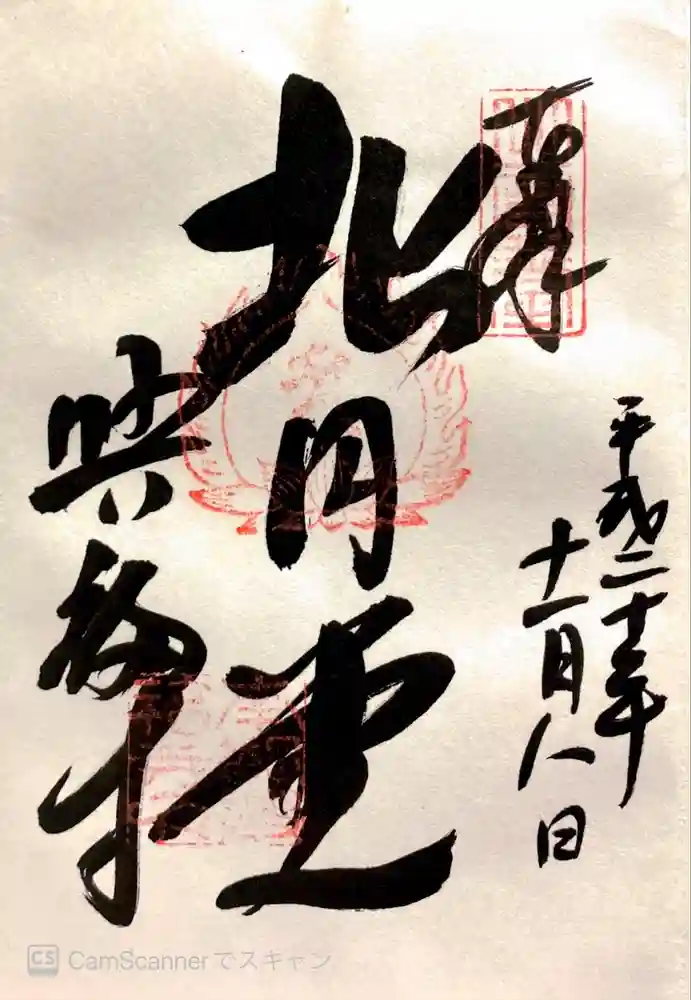 奉拝
平成二十年
十一月八日
北円堂
興福寺
CS CamScannerでスキャン